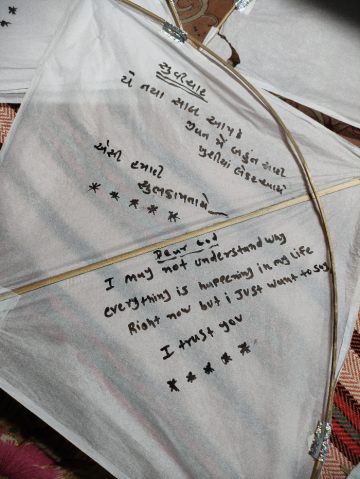 સુવિચાર
યે નયા સાલ આપકે
જીવન મેં બહુત સારી
ખુશીયાં લેકર આયે
એસી હમારી
શુભકામનાયે
* * * * *
Dear God
I may not understand way
everything is happening in my life
Right now but i Just want to say
I trust you
* * * * *